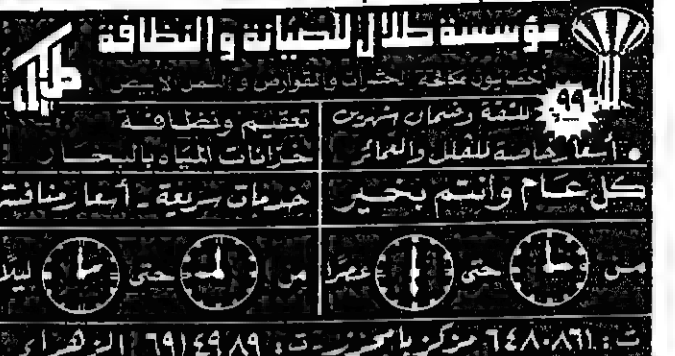 مؤسسة طلال للصيانة والنظافة
طلال
أخصائيون مكافحة الحشرات والقوارض والنمل الأبيض
99
للثقة وضمان شهرين
• أسعار خاصة للفلل والعمائر
تعقيم ونظافة
خزانات المياه بالبخار
كل عام وأنتم بخير
خدمات سريعة - أسعار منافسة
من حتى عصرا
من حتى ليلا
ت : ٦٤٨٠٨٦١ مركز يا محرز - ت : ٦٩١٤٩٨٩ الزهراء